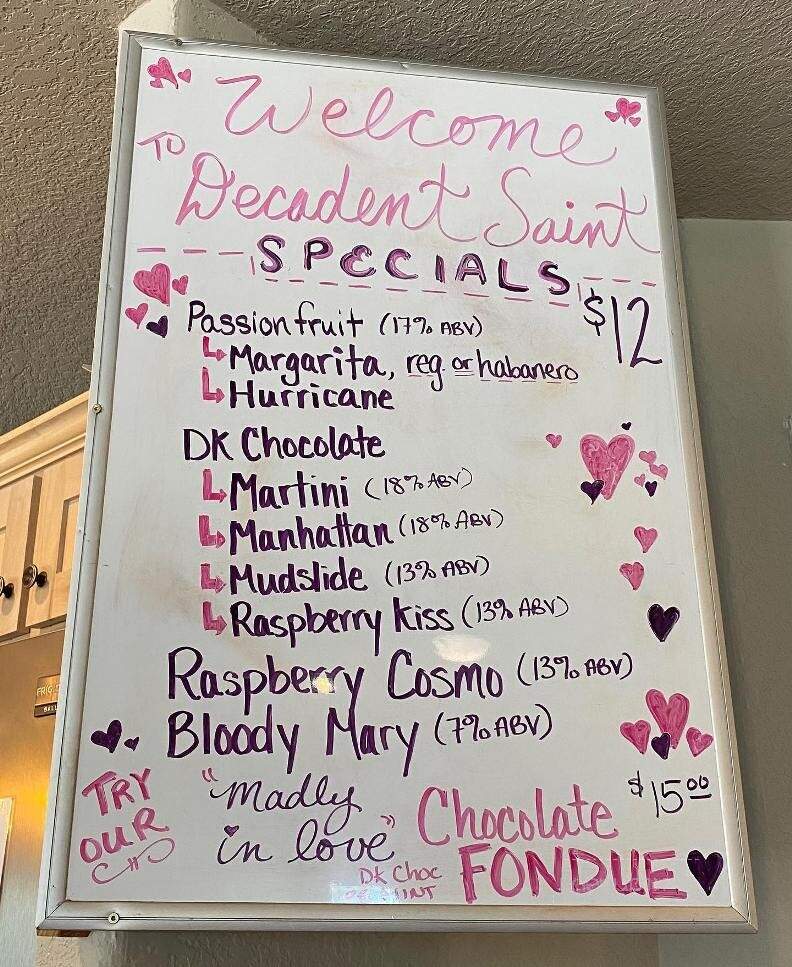 Welcome
TO
Decadent Saint
SPECIALS
$12
Passion fruit (17% ABV)
Margarita, reg. or habanero
Hurricane
DK Chocolate
Martini (18% ABV)
Manhattan (18% ABV)
Mudslide (13% ABV)
Raspberry Kiss (13% ABV)
Raspberry Cosmo (13% ABV)
Bloody Mary (7% ABV)
TRY
OUR
"Madly
in love"
DK Choc
Chocolate
FONDUE
$15.00